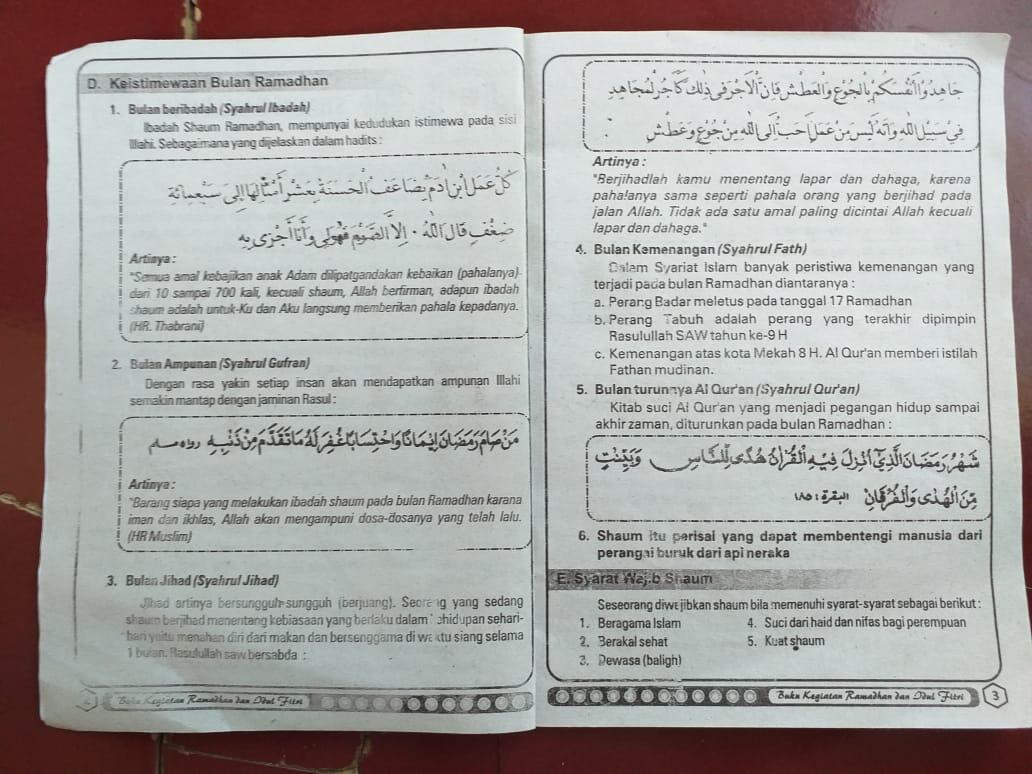 D. Keistimewaan Bulan Ramadhan
1. Bulan beribadah (Syahrul Ibadah)
Ibadah Shaum Ramadhan, mempunyai kedudukan istimewa pada sisi
Illahi. Sebagaimana yang dijelaskan dalam hadits :
كُلُّ عَمَلِ ابْنِ اٰدَمَ يُضَاعَفُ الْحَسَنَةُ بِعَشْرِ اَمْثَالِهَا اِلٰى سَبْعِمِائَةِ
ضِعْفٍ قَالَ اللهُ ٠ اِلَّا الصَّوْمَ فَهُوَلِى وَاَنَا اَجْزِى بِهِ
Artinya :
"Semua amal kebajikan anak Adam dilipatgandakan kebaikan (pahalanya)
dari 10 sampai 700 kali, kecuali shaum, Allah berfirman, adapun ibadah
shaum adalah untuk-Ku dan Aku langsung memberikan pahala kepadanya.
(HR. Thabrani)
2. Bulan Ampunan (Syahrul Gufran)
Dengan rasa yakin setiap insan akan mendapatkan ampunan Illahi
semakin mantap dengan jaminan Rasul :
مَنْ صَامَ رَمَضَانَ اِيْمَانًا وَاحْتِسَابًا غُفِرَلَهُ مَاتَقَدَّمَ مِنْ ذَنْبِهِ
Artinya :
"Barang siapa yang melakukan ibadah shaum pada bulan Ramadhan karana
iman dan ikhlas, Allah akan mengampuni dosa-dosanya yang telah lalu.
(HR Muslim)
3. Bulan Jihad (Syahrul Jihad)
Jihad artinya bersungguh-sungguh (berjuang). Seorang yang sedang
shaum berjihad menentang kebiasaan yang berlaku dalam kehidupan sehari-
hari yaitu menahan diri dari makan dan bersenggama di waktu siang selama
1 bulan. Rasulullah saw bersabda :
Buku Kegiatan Ramadhan dan Idul Fitri
جَاهِدُوْا اَنْفُسَكُمْ بِالْجُوْعِ وَالْعَطَشِ فَاِنَّ الْاَجْرَفِى ذٰلِكَ كَاَجْرِلْمُجَاهِدِ
فِيْ سَبِيْلِ اللهِ وَاَنَّهُ لَيْسَ مِنْ عَمَلٍ اَحَبَّ اِلَى اللهِ مِنْ جُوْعٍ وَعَطَشٍ
Artinya :
"Berjihadlah kamu menentang lapar dan dahaga, karena
pahalanya sama seperti pahala orang yang berjihad pada
jalan Allah. Tidak ada satu amal paling dicintai Allah kecuali
lapar dan dahaga."
4. Bulan Kemenangan (Syahrul Fath)
Dalam Syariat Islam banyak peristiwa kemenangan yang
terjadi pada bulan Ramadhan diantaranya :
a. Perang Badar meletus pada tanggal 17 Ramadhan
b. Perang Tabuh adalah perang yang terakhir dipimpin
Rasulullah SAW tahun ke-9 H
c. Kemenangan atas kota Mekah 8 H. Al Qur'an memberi istilah
Fathan mudinan.
5. Bulan turunnya Al Qur'an (Syahrul Qur'an)
Kitab suci Al Qur'an yang menjadi pegangan hidup sampai
akhir zaman, diturunkan pada bulan Ramadhan :
شَهْرُ رَمَضَانَ الَّذِيْٓ اُنْزِلَ فِيْهِ الْقُرْاٰنُ هُدًى لِّلنَّاسِ وَبَيِّنٰتٍ
مِّنَ الْهُدٰى وَالْفُرْقَانِ البقرة : ١٨٥
6. Shaum itu perisai yang dapat membentengi manusia dari
perangai buruk dari api neraka
E. Syarat Wajib Shaum
Seseorang diwajibkan shaum bila memenuhi syarat-syarat sebagai berikut :
1. Beragama Islam
2. Berakal sehat
3. Dewasa (baligh)
4. Suci dari haid dan nifas bagi perempuan
5. Kuat shaum
Buku Kegiatan Ramadhan dan Idul Fitri 3